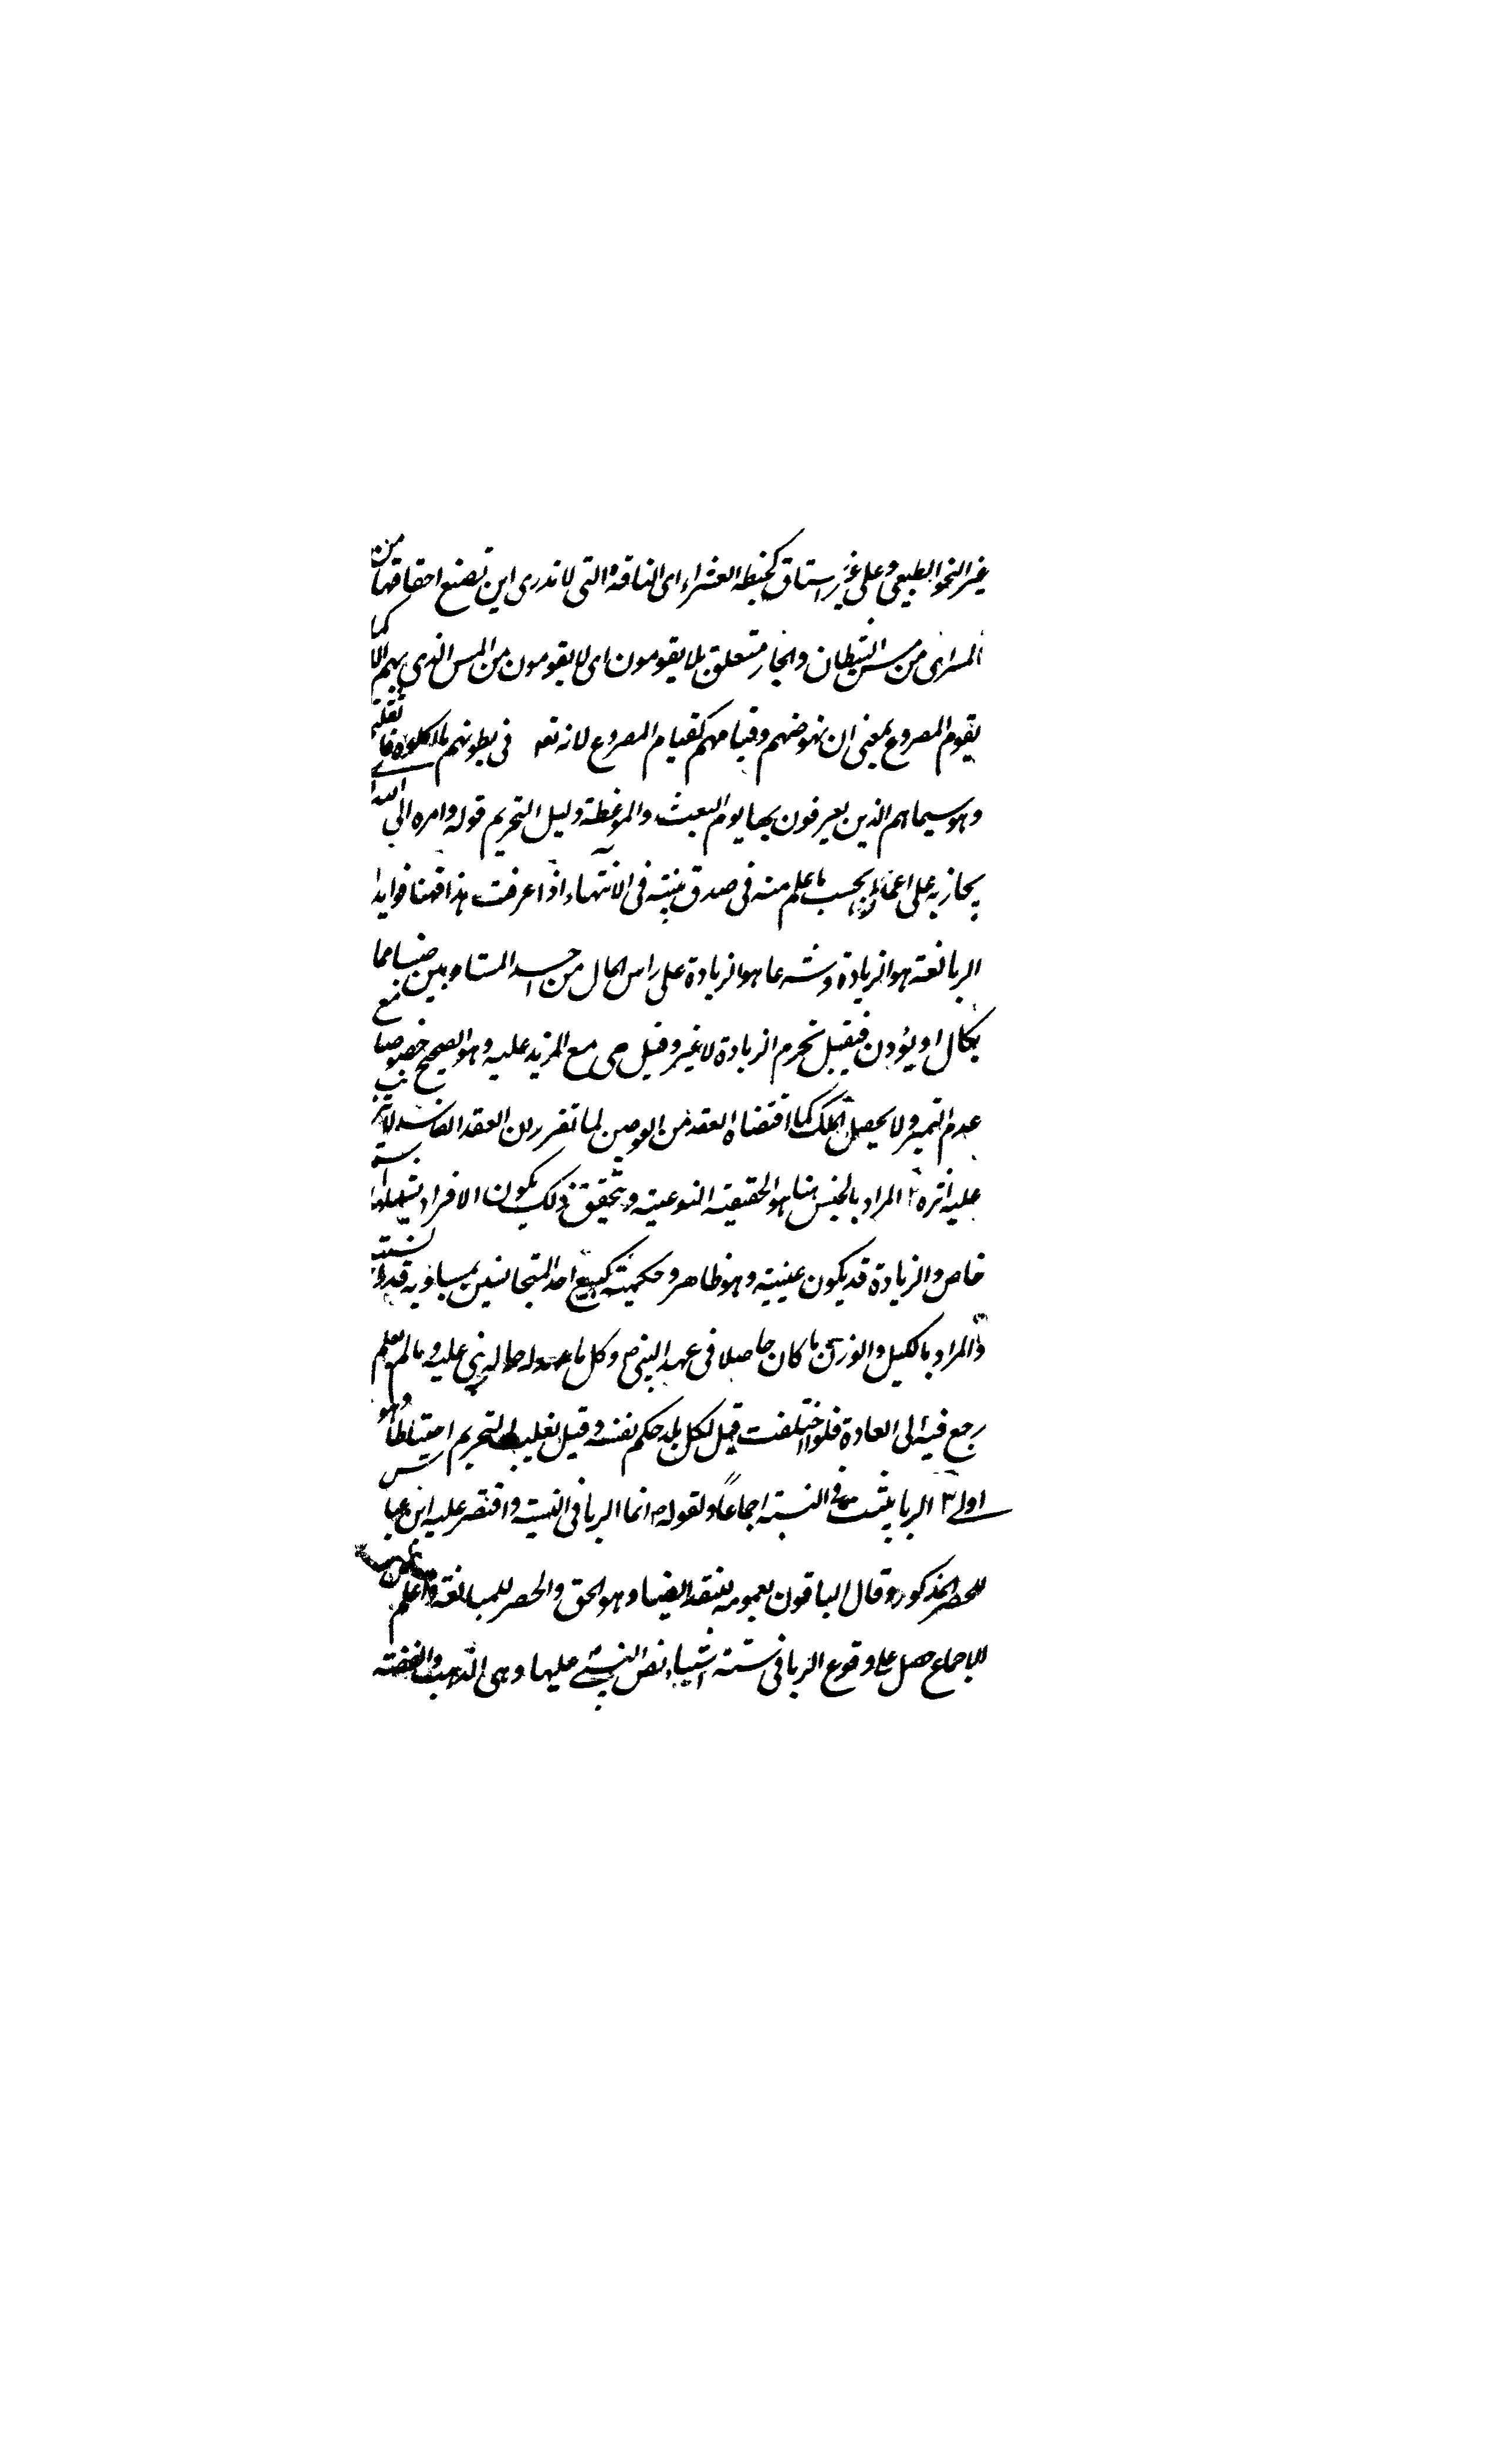 غير النحو الطبيعي وعلى غير اتساق كخبط العشراء اى الناقة والتى لا تدرى اين تضع اخفافها من
المس اى من مس الشيطان والجار متعلق بلا يقومون اى لا يقومون من المس الذى بهم الا كما
يقوم المصروع بمعنى ان نهوضهم وقيامهم كقيام المصروع لانه تعه فى بطونهم ما اكلوه فاثقلهم
وهو سيماهم الذين يعرفون بها يوم البعث والموعظة دليل التحريم قوله وامره الى الله
يجازيه على اعماله بحسب ما علم منه فى صدق نيته فى الانتهاء اذا عرفت هذا فهنا فوايد ا
الربا لغة هو الزيادة وشرعا هو الزيادة على راس المال من احد المتساويين جنسا مما
يكال او يوزن فقيل تحرم الزيادة لا غير وقيل هى مع المزيد عليه وهو الصحيح خصوصا مع
عدم التميز ولا يحصل الملك كما اقتضاه العقد من العوضين لما تقرر ان العقد الفاسد لا يترتب
عليه اثره ٢ المراد بالجنس هنا هو الحقيقة النوعية ويتحقق ذلك بكون الافراد يشملها اسم
خاص والزيادة قد يكون عينية وهو ظاهر وحكمية كبيع احد المتجانسين بمساويه قدرا نسيئة
المراد بالكيل والوزن ما كان حاصلا فى عهد النبى ص وكل ما له حالة بنى عليه وما لم يعلم
رجع فيه الى العادة فلو اختلفت قيل لكل بلد حكم نفسه وقيل يغلب التحريم احتياطا وهو
اولى ٣ الربا يثبت فى النسية اجماعا ولقوله ص انما الربا فى النسية واقتصر عليه ابن عباس
للحصر المذكور وقال الباقون بعمومه للنقد ايضا وهو الحق والحصر للمبالغة واعلم
الاجماع حصل على وقوع الربا فى ستة اشياء نص النبى عليها وهى الذهب والفضة